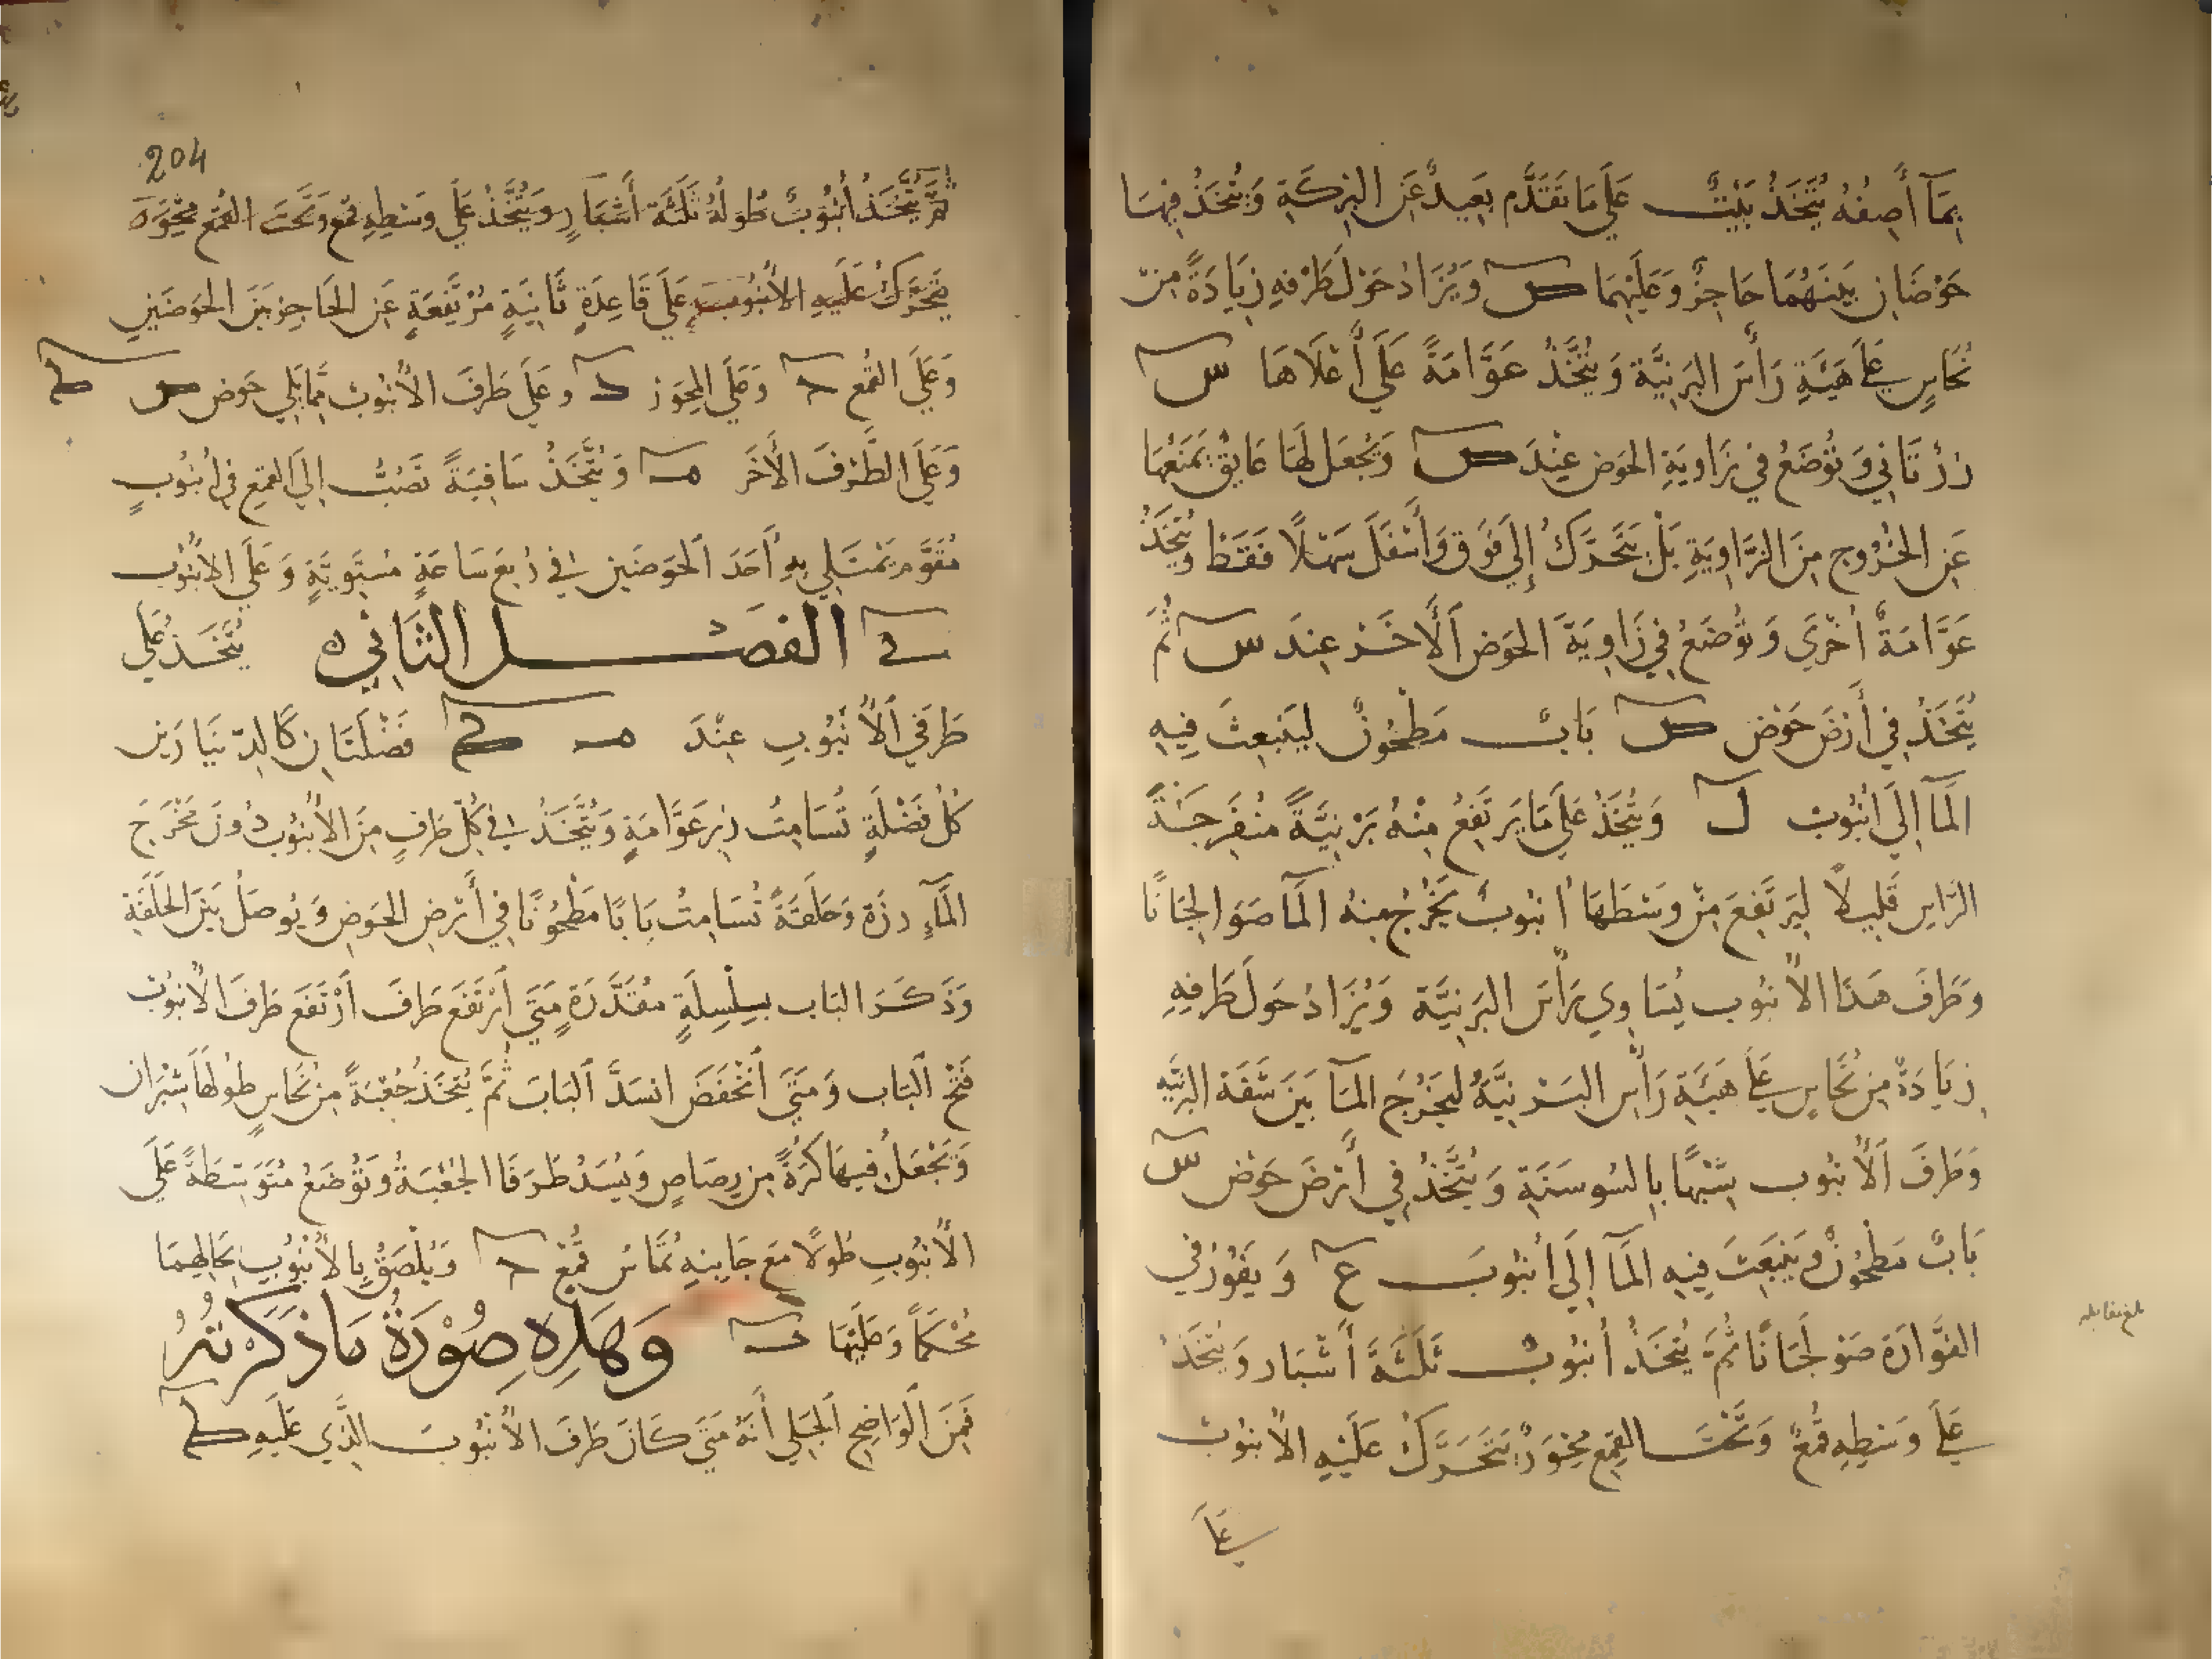 بِمَآ أَصِفُهُ يُتَّخَذُ بَيْتٌ عَلَي مَا تَقَدَّم بَعِيدٌ عَنِ البِركَةِ وَيُتَّخَذُ فِيهَا
حَوْضَانِ بَينَهُمَا حَاجِزٌ وَعَلَيْهِمَا ص س وَيُزَادُ حَوْلَ طَرْفِهِ زِيَادَةً مِنْ
نُحَاسٍ عَلَى هَيَئَةِ رَأْسِ البَرنِيَّة وَيُتَّخَذُ عَوَّامَةً عَلَي أَعْلَاهَا
رزتانِي وَتُوضَعُ فِي زَاوِيَةِ الحَوض عِنْدَ وَيُجعَل لَهَا عَايِقٌ يَمنَعُهَا
عَنِ الخُرُوجِ مِنَ الزَّاوِيَةِ بَلْ يَتَحَرَّكُ إِلَي فَوَق وَأَسْفَلَ سَهْلًا فَقَط وَيُتَّخَذُ
عَوَّامَةٌ أُخْرَي وَتُوضَعُ فِي زَاوِيَةِ الحَوضِ الآخَر عِندَ س ثُمَّ
يُتَّخَذُ فِي أَرْضِ حَوْض بَابٌ مَطْحُونٌ لِيَنبَعِثَ فِيهِ
المَآ إِلَي أُنْبُوبِ ل وَيُتَّخَذُ عَلَي مَا يَرتَفِعُ مِنْهُ بَرْنِيَّةً مُنفَرِجَةً
الرَّاسِ قَلِيلًا لِيَرتَفِعَ مِنْ وَسَطِهَا أُنبُوبٌ يَخْرُجُ مِنهُ المَآ صَوَالِجَانًا
وَطَرَفَ هَذَا الأُنبُوب يُسَاوِي رَأْسَ البَرنِيَّة وَيُزَادُ حَولَ طَرفِهِ
زِيَادَةٌ مِن نُحَاسٍ عَلَى هَيَئَةِ رَأْسِ البَرنِيَّةُ لِيَخْرُجَ المَآ بَيْنَ شَفَة البَرنيَّه
وَطَرفَ الأُنبُوب شَبْهًا بِالسُوسَنَةِ وَيُتَّخَذُ فِي أَرْضِ حَوْض س
بَابٌ مَطْحُونٌ يَنبَعِثُ فِيهِ المَآ إِلَي أُنبُوبَ ع وَيَفُوزُ فِي
الفَوَّارَة صَوْلَجَانًا ثُمَّ يُتَّخَذُ أُنبُوبٌ ثَلَثَةَ أَشبَار وَيُتَّخَذُ
عَلَى وَسَطِهِ قُمعٌ وَتَحْتَ القِمعِ مِحْوَرٌ يَتَحَرَّكُ عَلَيْهِ الأُنبُوبُ
عَلَى
بلغ مقابله
204
ثُمَّ يُتَّخَذُ أُنبُوبٌ طُولُهُ ثَلَثَة أَشْبَارٍ وَيُتَّخَذُ عَلَي وَسَطِهِ قمع وَتَحتَ القُمع مِحْوَرٌ
يَتَحَرَّكُ عَلَيهِ الأُنبُوبُ عَلَي قَاعِدَةٍ ثَانِيَةٍ مُرْتَفِعَةٍ عَنِ الحَاجِزِ بَيْنَ الحَوضَينِ
وَعَلَي القُمع ح وَعَلَي المِحوَر د وعَلَي طَرفَ الأُنبُوبِ مِمَّا يَلِي حَوض ص ط
وَعَلَي الطَّرفَ الأَخَر م وَيُتَّخَذُ سَاقِيَةً تَصُبُّ إِلَي القمعِ فِي أُنبُوبٍ
مُقَوَّمٍ يَمْتَلِي بِهِ أَحَدَ الحَوضَينِ فِي رُبعِ سَاعَةٍ مُستَوِيَّةٍ وَعَلَي الأُنبُوبِ
في الفَصْـل الثَّانِي يُتَّخَذُ عَلَي
طَرَفَي الأُنبُوبِ عِنْدَ م ط فَضْلَتَانِ كَالدِّينَارَينِ
كُلُ فَضْلَةٍ تُسَامِتُ زِرَ عَوَّامَةٍ وَيُتَّخَذُ فِي كُلِّ طَرَفٍ مِنَ الأُنبُوب دُونَ مَخْرَجَ
المَآءِ رزة وَحَلَقَةً تُسَامِتُ بَابًا مَطْحُونًا فِي أَرْضِ الحَوضِ وَيُوصَلُ بَيْنَ الحَلَقَةِ
وَذَكَرَ البَاب بِسِلْسِلَةٍ مُقَدَّرَةٍ مَتَي أَرْتَفَعَ طَرفَ أَرْتَفَعَ طَرفَ الأُنبُوب
فَتْحَ البَاب وَمَتَي أَنْخَفَضَ انسَدَّ البَابَ ثُمَّ يُتَّخَذُ جُعْبَةً مِنْ نُحَاسٍ طُولُهَا شِبْرَانِ
وَيُجْعَلُ فِيهَا كُرَةً مِن رِصَاصٍ وَيُسَدُ طَرَفَا الجُعْبَةُ وَتُوضَعُ مُتَوَسِطَةً عَلَي
الأُنبُوبِ طُولًا مَعَ جَانِبِهِ تُمَاسُ قُمْع ح وَيُلْصَقُ بِالأُنبُوبِ بِحَالِهِمَا
مُحْكَمًا وَعَلَيْهَا وَهَذِهِ صُوْرَةُ مَا ذَكَرْتُهُ
فَمِنَ الوَاضِحِ الجَلِي أَنَّهُ مَتَي كَانَ طَرفَ الأُنبُوبَ الَّذِي عَلَيهِ ط